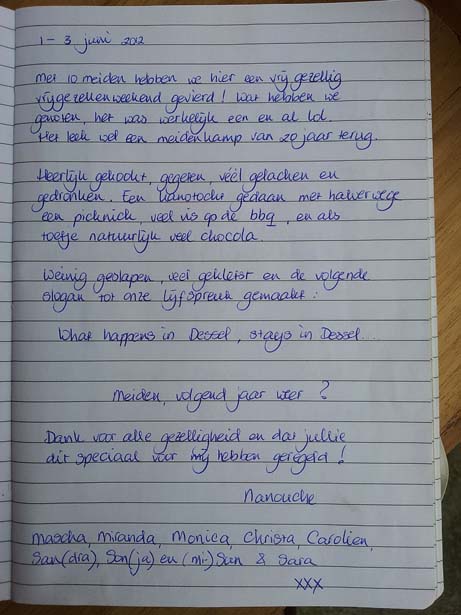 1 - 3 juni 2012
Met 10 meiden hebben we hier een vrij gezellig
vrijgezellenweekend gevierd! Wat hebben we
genoten, het was werkelijk een en al lol.
Het leek wel een meidenkamp van 20 jaar terug.
Heerlijk gekookt, gegeten, véél gelachen en
gedronken. Een kanotocht gedaan met halverwege
een picknick, veel vis op de bbq, en als
toetje natuurlijk veel chocola.
Weinig geslapen, veel gekletst en de volgende
slogan tot onze lijfspreuk gemaakt:
What happens in Dessel, stays in Dessel...
Meiden, volgend jaar weer?
Dank voor alle gezelligheid en dat jullie
dit speciaal voor mij hebben geregeld!
Nanouche
Mascha, Miranda, Monica, Christa, Carolien,
San(dra), Son(ja) en (Mi-)San & Sara
XXX